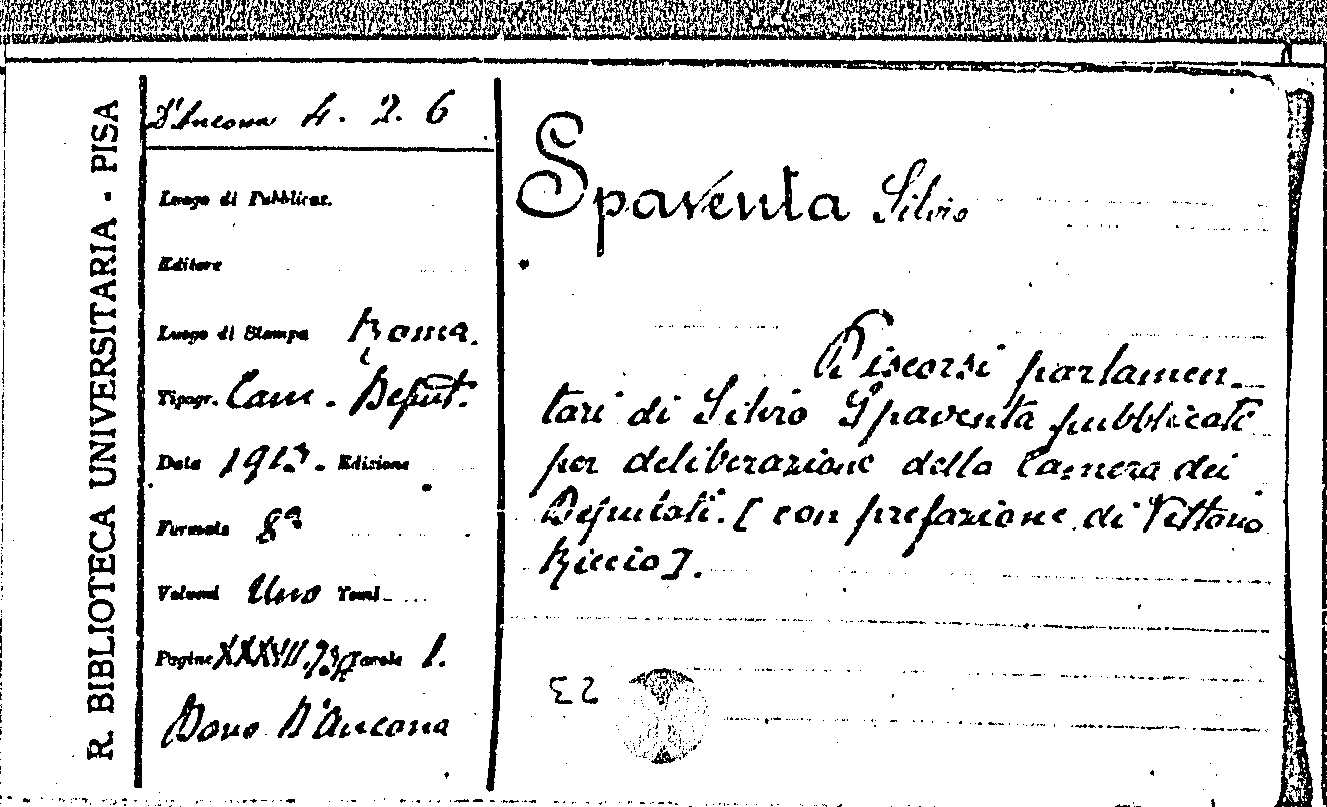 R. BIBLIOTECA UNIVERSITARIA - PISA
D'Ancona 4. 2. 6
Luogo di Pubblicaz.
Editore
Luogo di Stampa Roma.
Tipogr. Cam. Deput.
Data 1913. Edizione
Formato 8º
Volumi Uno Tomi
Pagine XXXVII, Tavole 1.
Dono D'Ancona
Spaventa Silvio
Discorsi parlamen-
tari di Silvio Spaventa pubblicati
per deliberazione della Camera dei
Deputati. [con prefazione di Vittorio
Riccio].
23